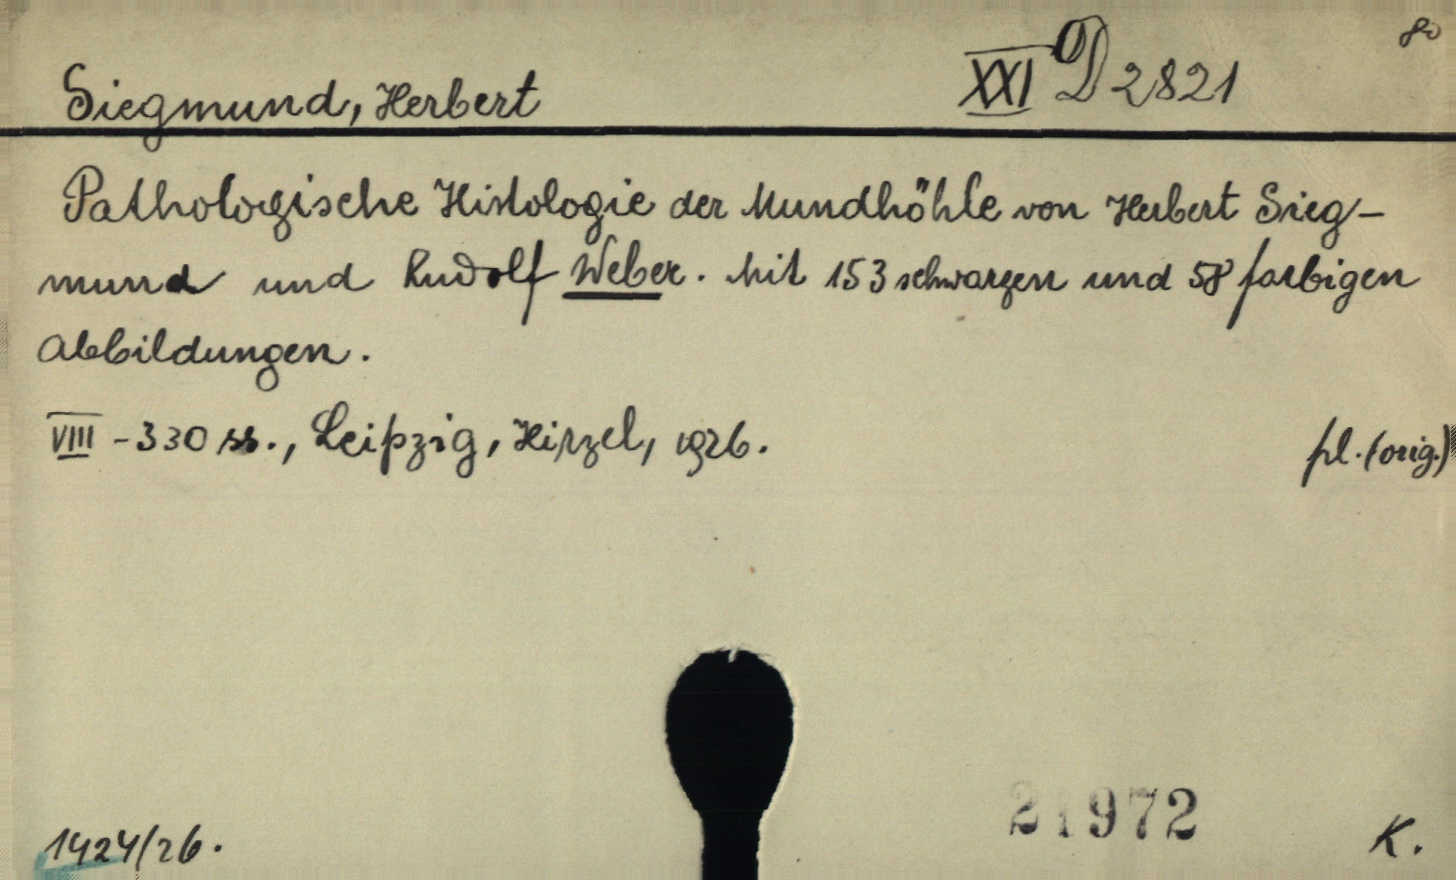 80
Siegmund, Herbert XXI D 2821
Pathologische Histologie der Mundhöhle von Herbert Sieg-
mund und Rudolf Weber. Mit 153 schwarzen und 58 farbigen
Abbildungen.
VIII - 330 ss., Leipzig, Hirzel, 1926. pl. (orig.)
21972
1424/26. K.